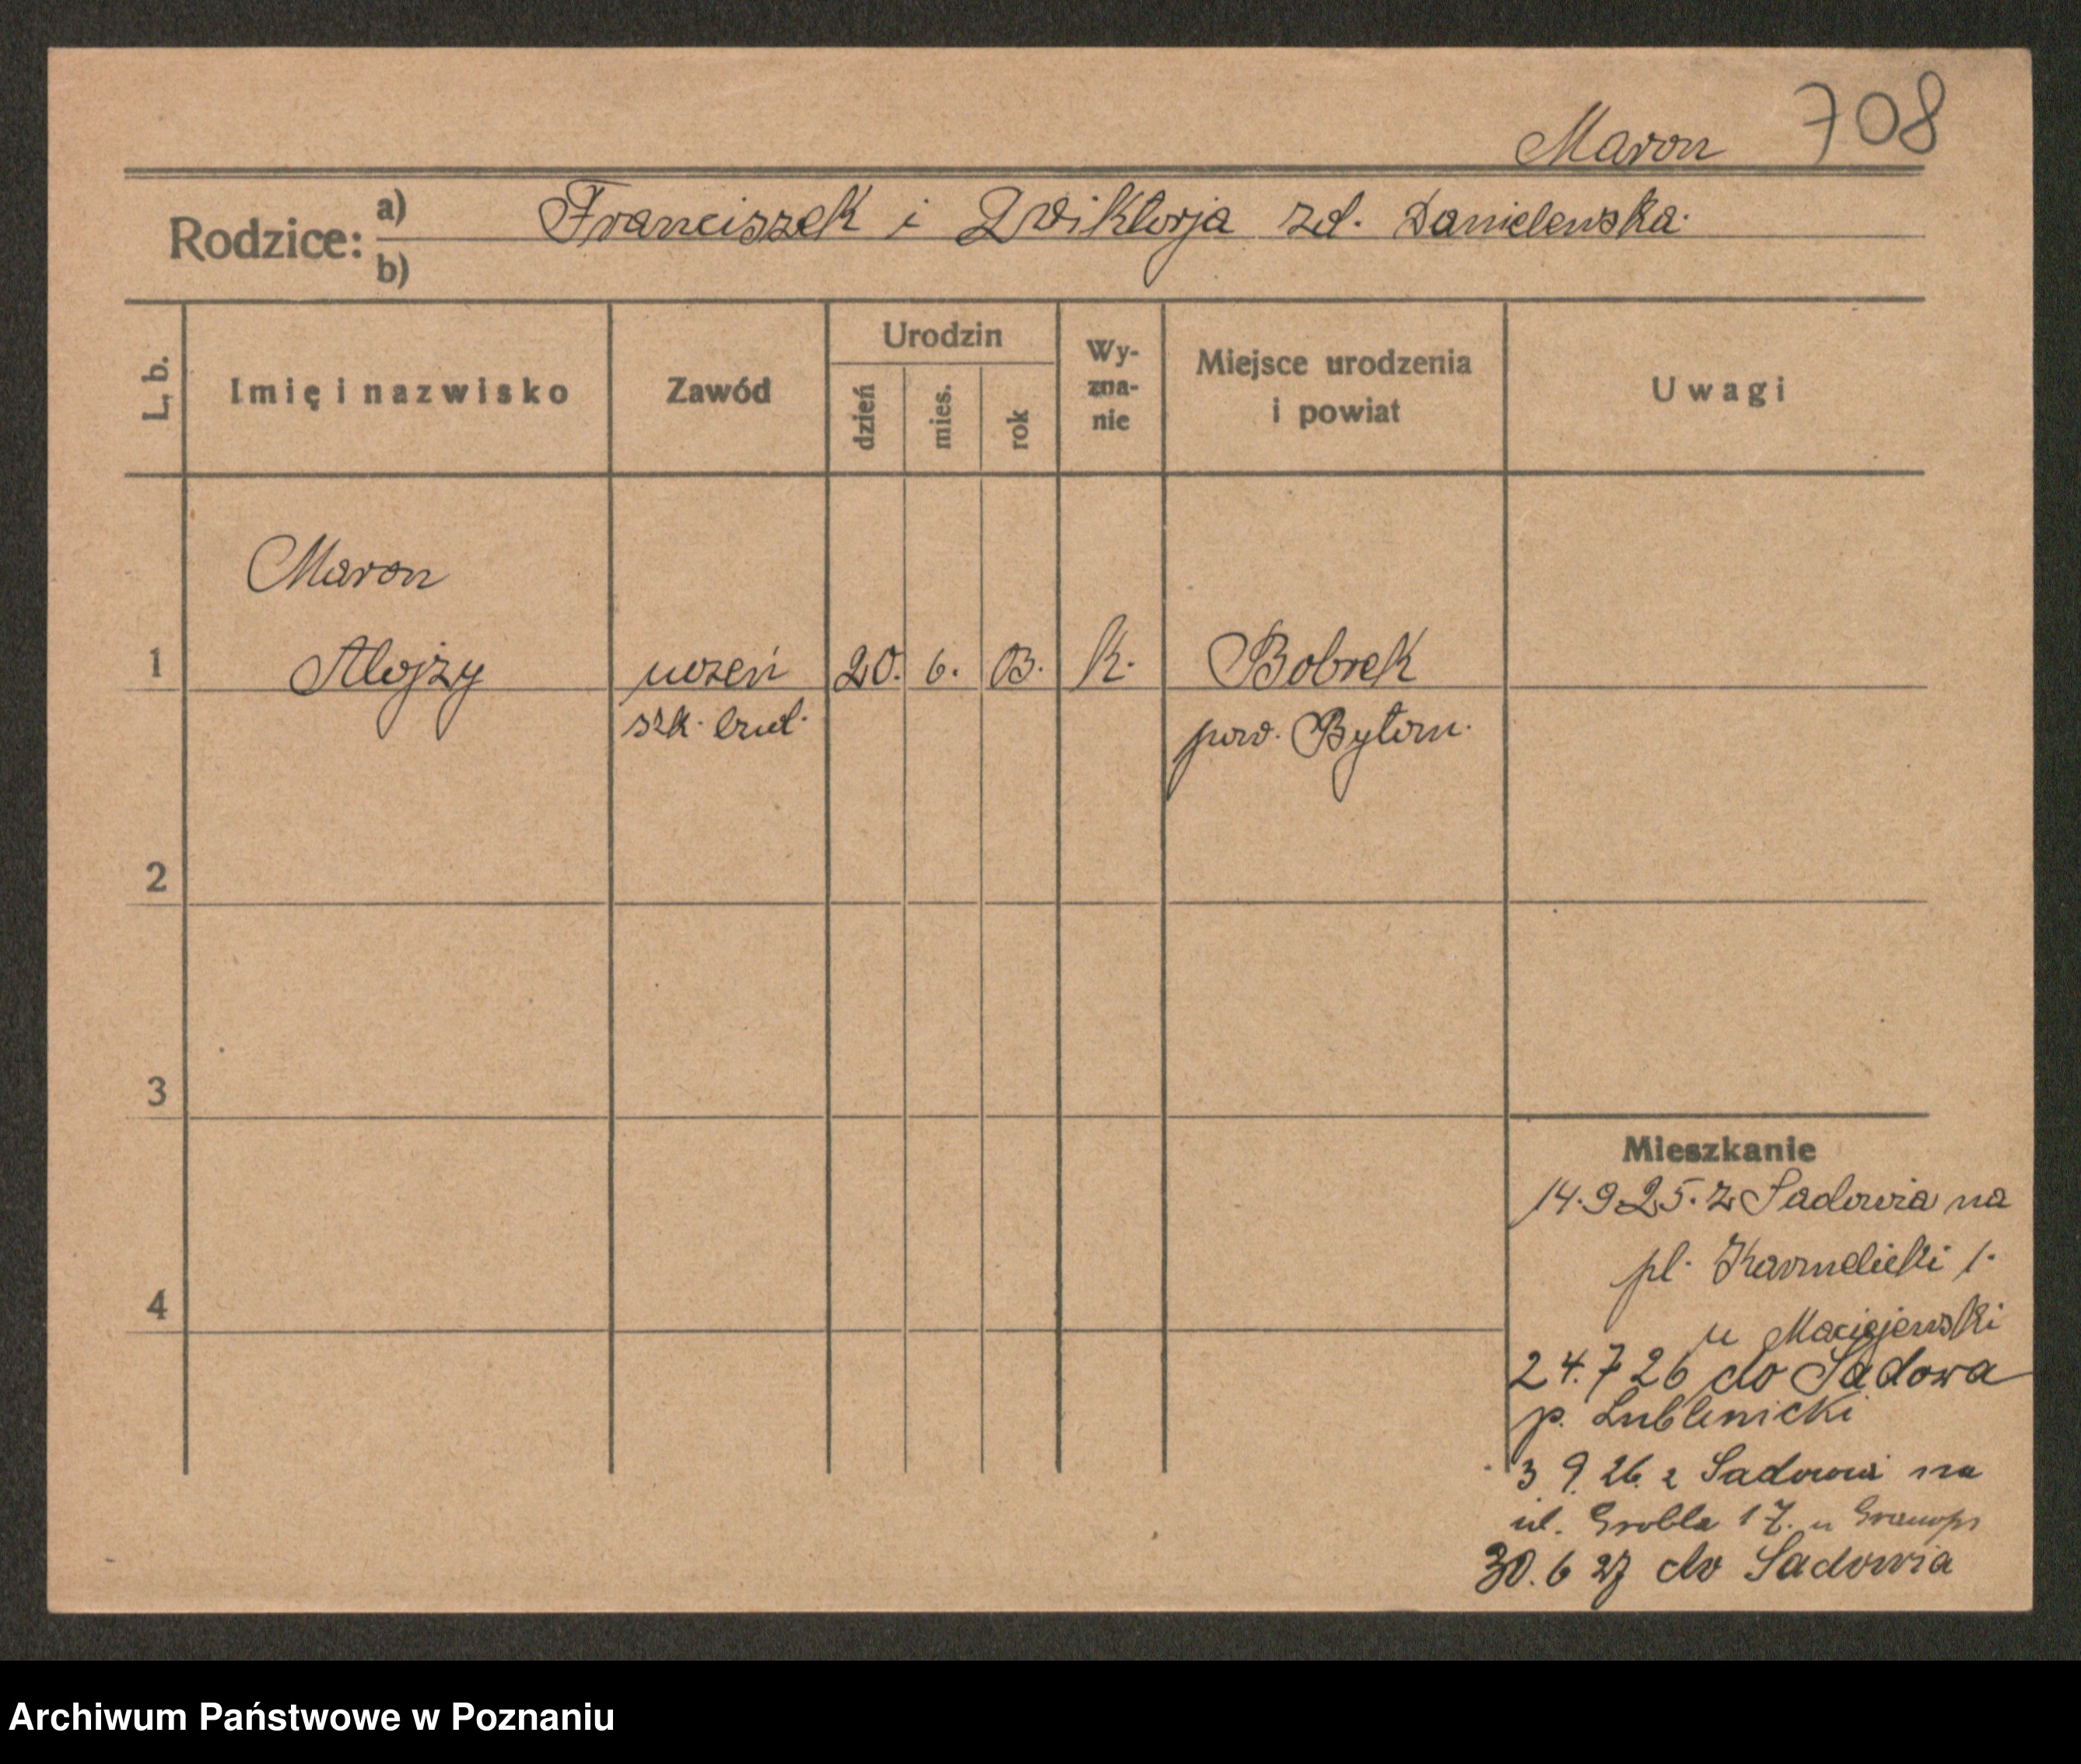 Maron 708
Rodzice: a) Franciszek i Wiktorja zd. Danielewska.
b)
L. b. Imię i nazwisko Zawód Urodzin dzień mies. rok Wy-zna-nie Miejsce urodzenia i powiat Uwagi
Maron
1 Alojzy uczeń 20. 6. 03. k. Bobrek
szk. bud. pow. Bytom.
2
3
Mieszkanie
14.9 25. z Sadowia na
pl. Karmelicki 1.
u Maciejewski
4
24.7 26 do Sadowa
p. Lublinicki
3 9. 26. z Sadowia na
ul. Grobla 17. u
30. 6 27 do Sadowia
Archiwum Państwowe w Poznaniu